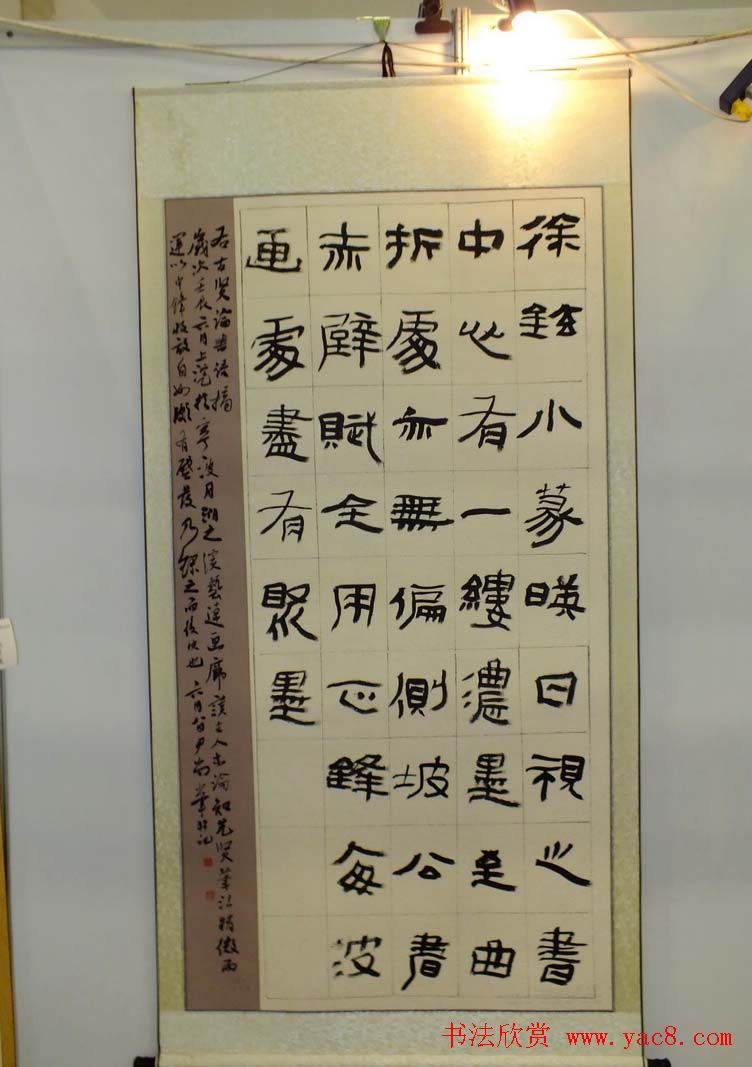 徐鉉小篆暎日視之書
中心有一縷濃墨至曲
折處亦無偏側坡公書
赤壁賦全用正鋒每波
画處盡有聚墨
右古賢論書語摘
歲次壬辰六月上浣於寧波月湖之濱藝蓮画廊讀古人書論知先賢筆法精微而
運以中鋒收放自如頗有啓發乃録之而後快也六月
书法欣赏 www.yac8.com